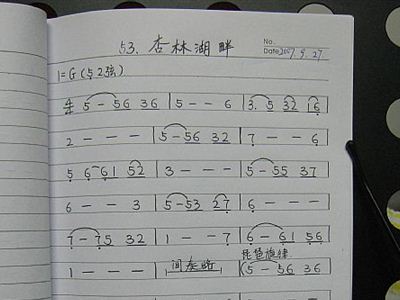 53. 杏林湖畔
No.
Date 2007.9.27
1=G (5 2弦)
4/4 5 - 56 36 | 5 - - 6 | 3. 5 32 16
2 - - - | 5 - 56 32 | 7 - - 6
5 6 61 52 | 3 - - - | 5 - 55 37
6 - - 3 | 5 - 53 27 | 6 - - -
7 - 75 32 | 1 - - 7 | 6 - 61 56
琵琶旋律
1 - - - | 间奏略 | (5 - 56 36